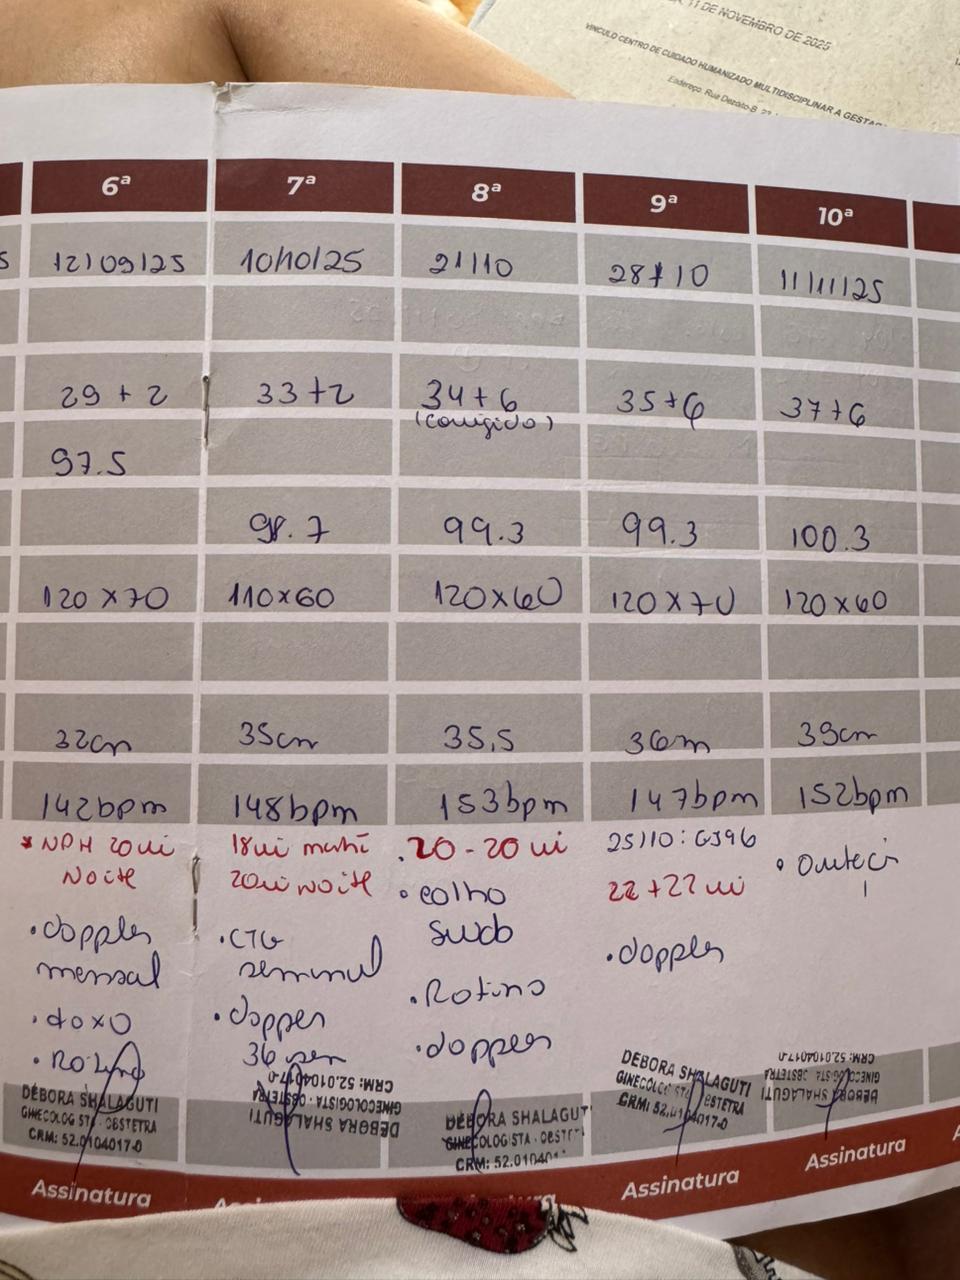 11 DE NOVEMBRO DE 2025
VINCULO CENTRO DE CUIDADO HUMANIZADO MULTIDISCIPLINAR A GESTA
Endereço: Rua Dezoito-B
6ª 7ª 8ª 9ª 10ª
12/09/25 10/10/25 21/10 28/10 11/11/25
29+2 33+2 34+6 35+6 37+6
(corrigido)
97.5
98.7 99.3 99.3 100.3
120x70 110x60 120x60 120x70 120x60
32cm 35cm 35,5 36cm 39cm
142bpm 148bpm 153bpm 147bpm 152bpm
* NPH 20ui
Noite
• doppler
mensal
• doxo
• Rotina
18ui manhã
20ui Noite
• CTG
semanal
• doppler
36 sem
• 20-20 ui
• colho
swab
• Rotina
• doppler
25/10: G396
22+22 ui
• doppler
DÉBORA SHALAGUTI
GINECOLOGISTA - OBSTETRA
CRM: 52.0104017-0
DÉBORA SHALAGUTI
GINECOLOGISTA - OBSTETRA
CRM: 52.0104017-0
DÉBORA SHALAGUT
GINECOLOGISTA - OBSTET
CRM: 52.010401
DÉBORA SHALAGUTI
GINECOLOGISTA OBSTETRA
CRM: 52.0104017-0
DÉBORA SHALAGUTI
GINECOLOGISTA OBSTETRA
CRM: 52.0104017-0
Assinatura Assinatura Assinatura